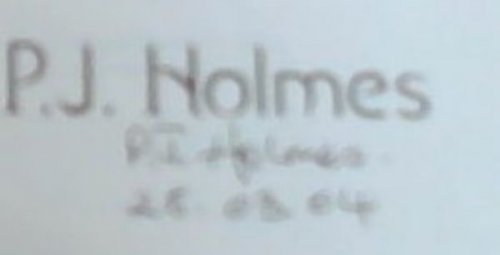 P.J. Holmes
P.J Holmes
28.03.04